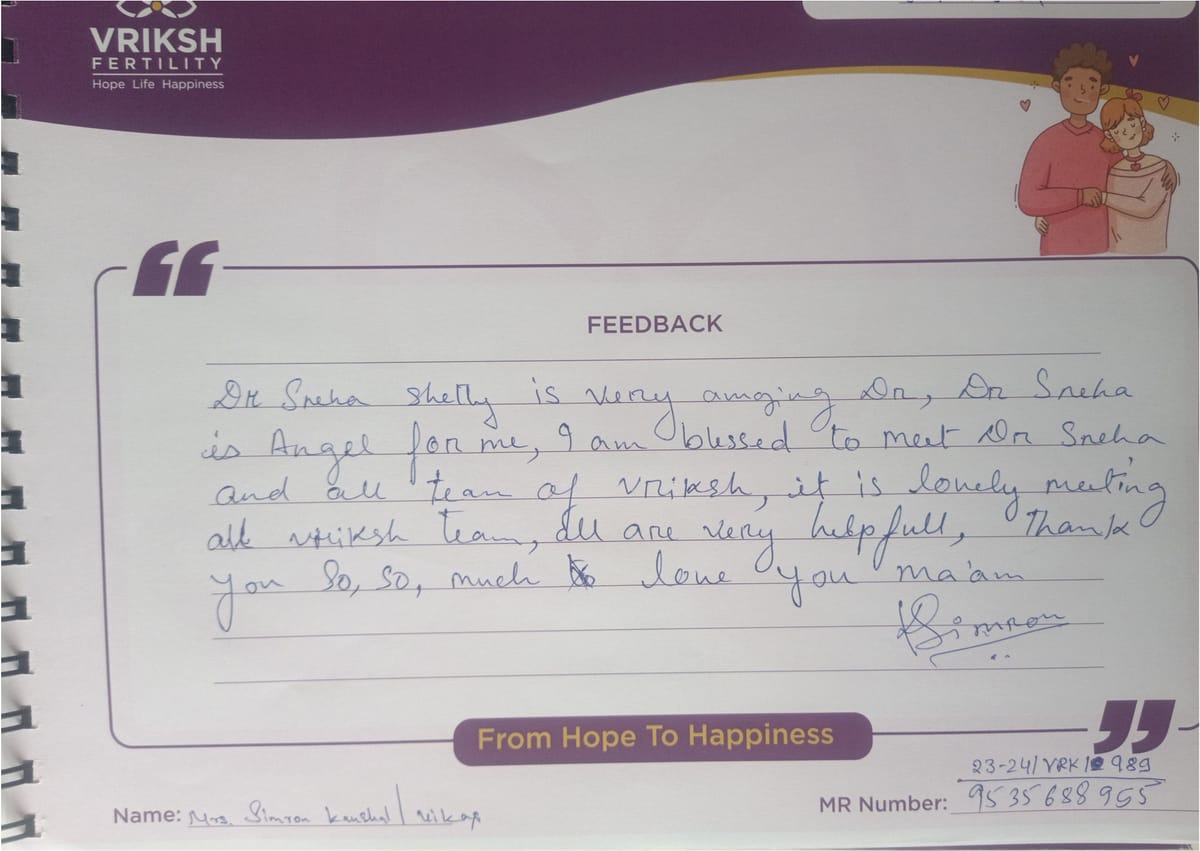 VRIKSH
FERTILITY
Hope Life Happiness
FEEDBACK
Dr Sneha Shelly is very amzing Dr, Dr Sneha
is Angel for me, I am blessed to meet Dr Sneha
and all team of vriksh, it is lovely meeting
all vriksh team, all are very helpfull, Thank
you So, So, much love you ma'am
Simron
From Hope To Happiness
23-24/VRK/989
Name: Mrs. Simron Kaushal/vikas
MR Number: 9535688955